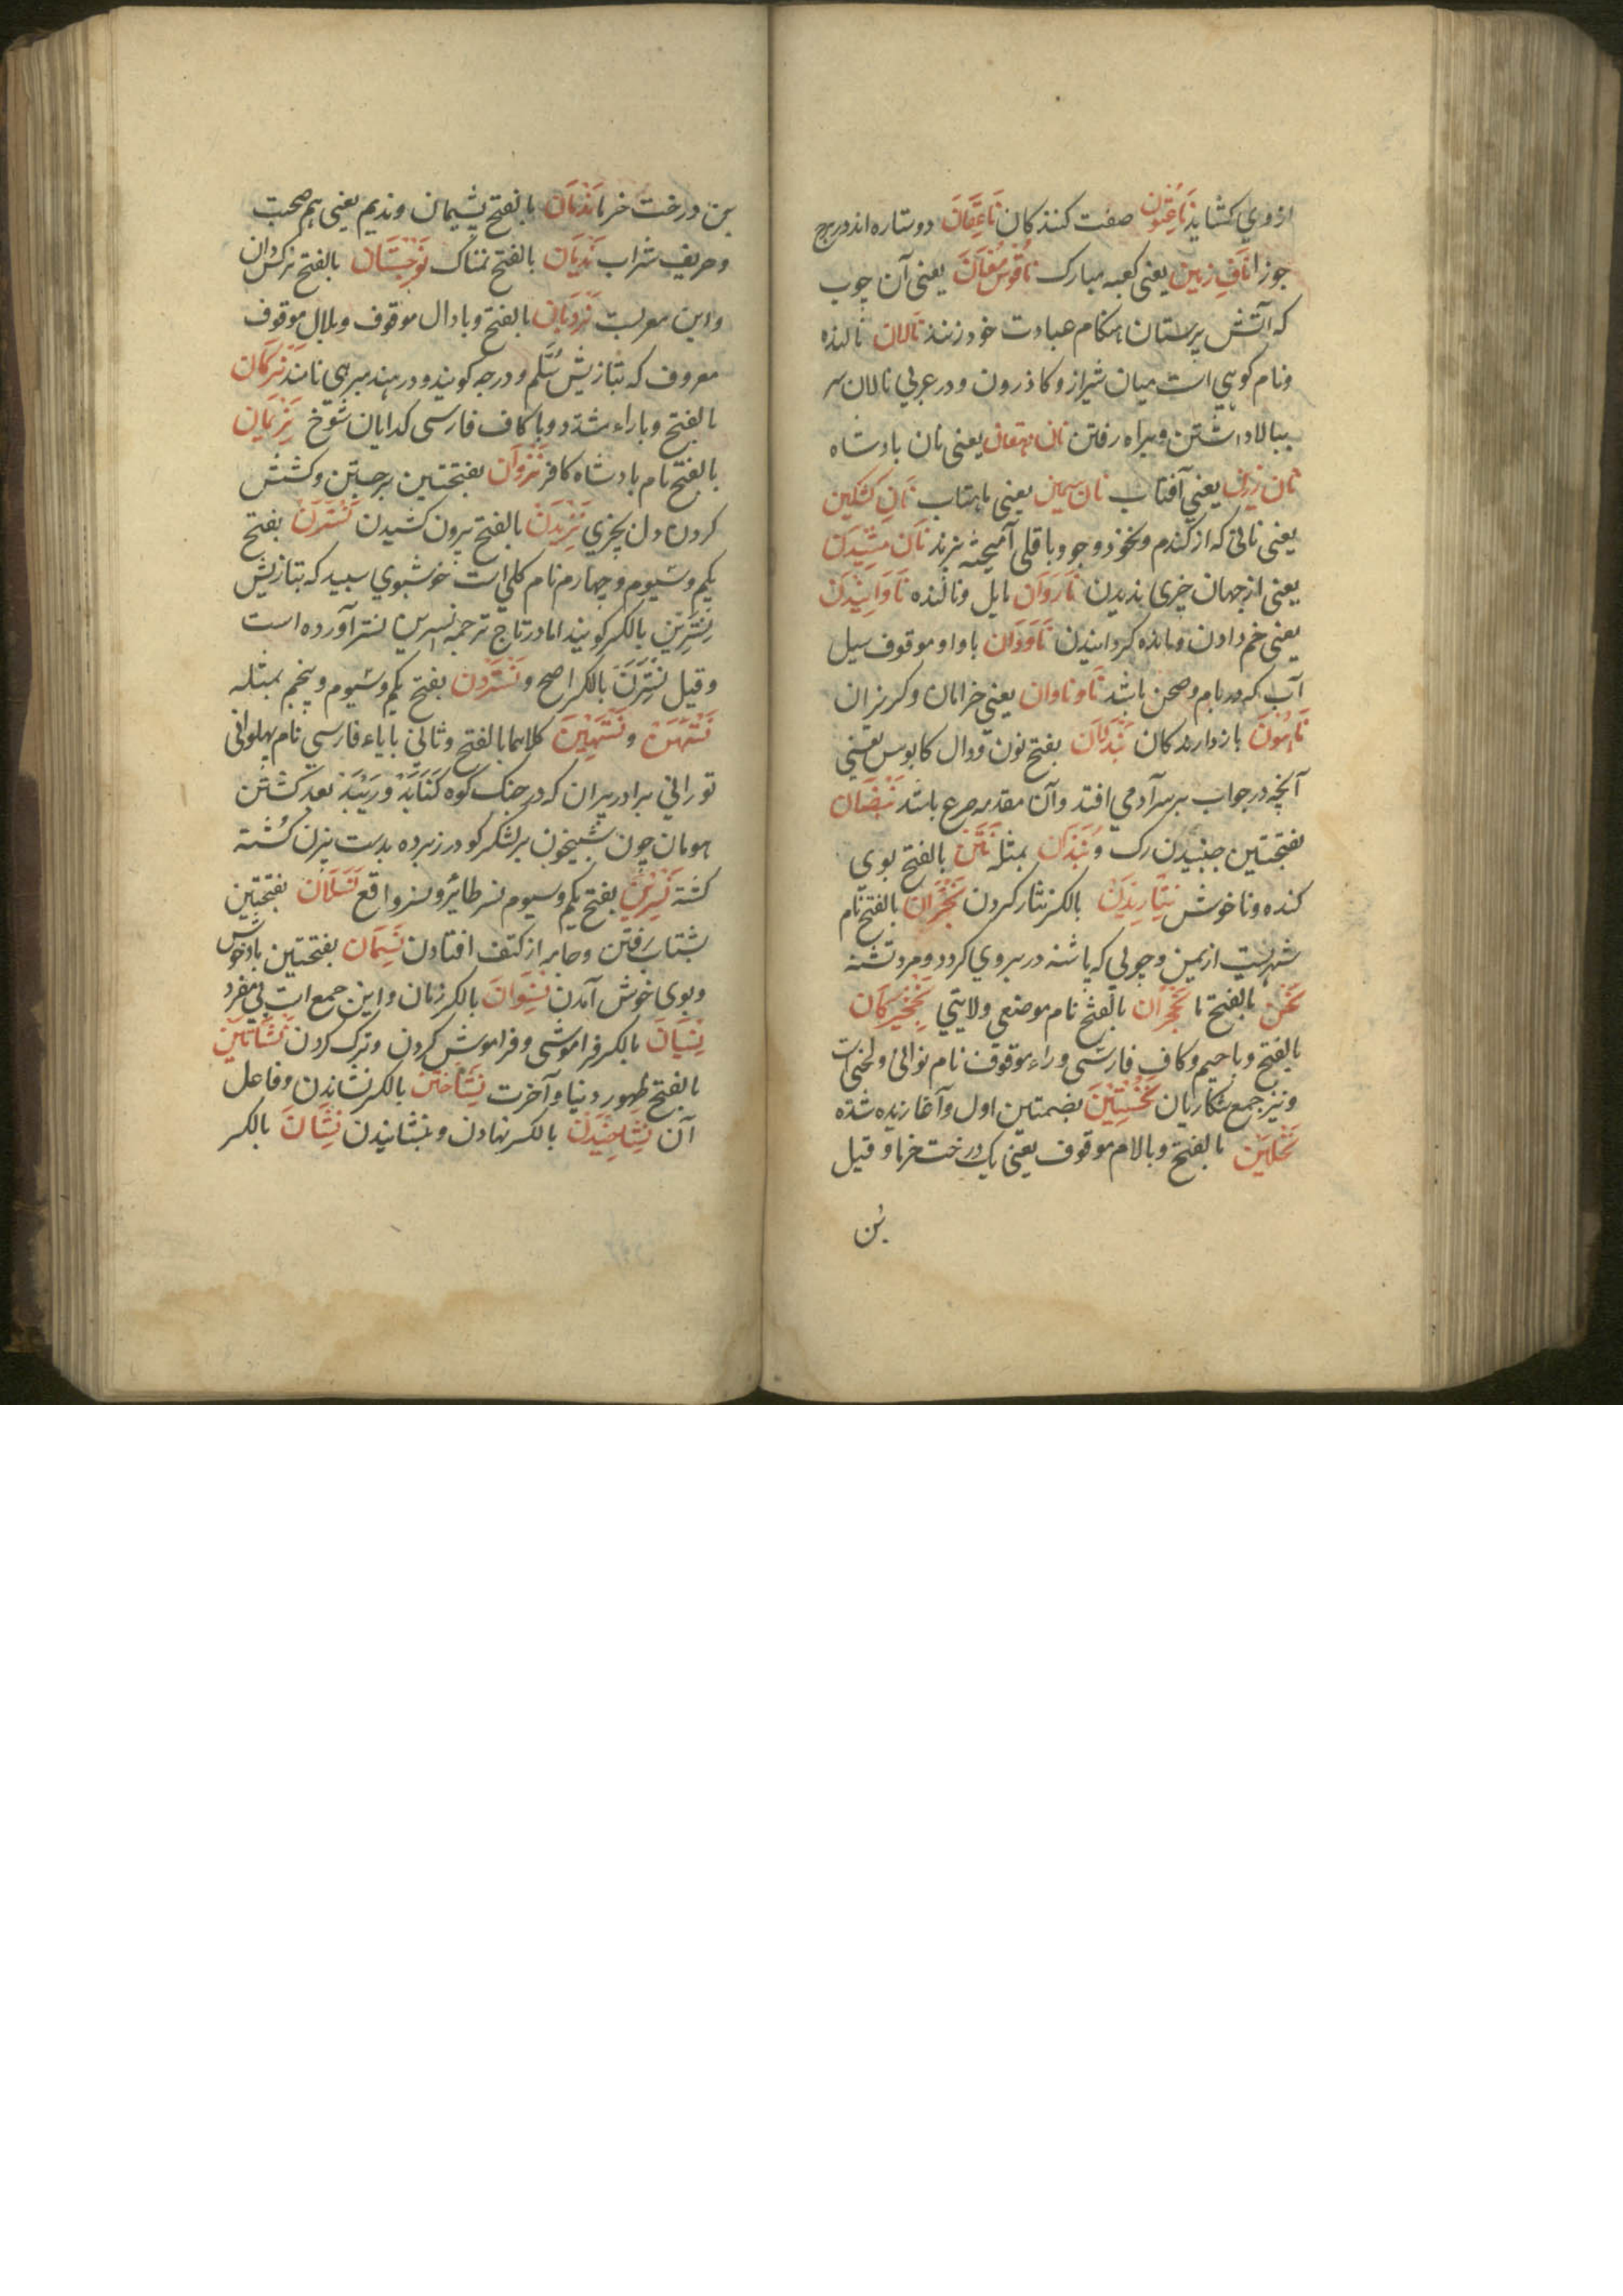 ازوي کشاید نَاعِتُون صفت کنندکان نَاعِقَان دو ستاره اند در برج
جوزا نَافِ زمین یعنی کعبه مبارک نَاقُوسِ مُغَان یعنی آن چوب
که آتش پرستان هنکام عبادت خود زنند نَالان نالنده
ونام کوهي است میان شیراز و کاذرون و در عربي نالان سر
ببالا داشتن و براه رفتن نان یعنی نان بادشاه
نان زرین یعني آفتاب نان سیمین یعنی ماهتاب نان کشکین
یعنی نانی که از کندم ونخود وجو وباقلی آمیخته پزند
یعنی از جهان چیزی ندیدن نَارَوَان مایل ونالنده نَاوَانِیدَن
یعنی خم دادن ومانده کردانیدن نَاوَدَان با واو موقوف سیل
آب که در بام وصحن باشد ناوناوان یعنی خرامان وکریزان
نَاهِیُون بازدارندکان نَیْدُلان بفتح نون ودال کابوس یعنی
آنچه در خواب بر سر آدمي افتد وآن مقدمه صرع باشد نَبَضَان
بفتحتین جنبیدن رک و بمثله نَتْن بالفتح بوی
کنده وناخوش نِثَارِیدَن بالکسر نثار کردن نَجْرَان بالفتح نام
شهریست از یمن وچوبي که پاشنه در بروي کردد ومرد تشنه
نَحْن بالفتح ما نَخْجَرَان بالفتح نام موضعي ولایتي نَخْجِیرکَان
بالفتح وباجیم وکاف فارسی وراء موقوف نام نوائي ولحنی است
ونیز جمع شکاریان نُخُسْتِین بضمتین اول وآغازیده شده
نَخْلبُن بالفتح وبالام موقوف یعنی یک درخت خرما وقیل
بُن
بن درخت خرما نَدْمَان بالفتح پشیمان وندیم یعنی هم صحبت
وحریف شراب نَدْیَان بالفتح نمناک نَرْجِسْتَان بالفتح نرکس دان
واین معربست نَرْدبَان بالفتح وبادال موقوف وبلال موقوف
معروف که بتازیش سُلَّم ودرجه کویند ودر هند سیرهي نامند نَرکَان
بالفتح وباراء مشدد وباکاف فارسی کدایان شوخ نَرِیمَان
بالفتح نام بادشاه کافر نَزَوَان بفتحتین برجستن وکشش
کردن دل بچیزي نَزِیدَن بالفتح بیرون کشیدن نَسْتَرَن بفتح
یکم وسیوم وچهارم نام کلي است خوشبوي سپید که بتازیش
نِسْتَرِین بالکسر کویند اما در تاج ترجمه نسرین نستر آورده است
وقیل نِسْتَرَن بالکسر اصح ونَسْتَرْدَن بفتح یکم وسیوم وپنجم بمثله
نَسْتَهَن ونَسْتَهِین کلاهما بالفتح وثاني بایاء فارسي نام پهلواني
توراني برادر پیران که در جنک کوه کَنَابَد ورَیْبَد بعد کشتن
هومان چون شبیخون بر لشکر کودرز برده بدست بیژن کُشته
کشته نَسْرَیْن بفتح یکم وسیوم نسر طائر ونسر واقع نَسَلان بفتحتین
بشتاب رفتن وجامه از کتف افتادن نَسَمَان بفتحتین بادخوش
وبوی خوش آمدن نِسْوَان بالکسر زنان واین جمع است بي مفرد
نِسْیَان بالکسر فراموشی وفراموش کردن وترک کردن نَشْأَتَین
بالفتح ظهور دنیا وآخرت نِشَاخْتَن بالکسر نشاندن وفاعل
آن نِشَاخِیدَن بالکسر نهادن وبنشانیدن نِشَان بالکسر